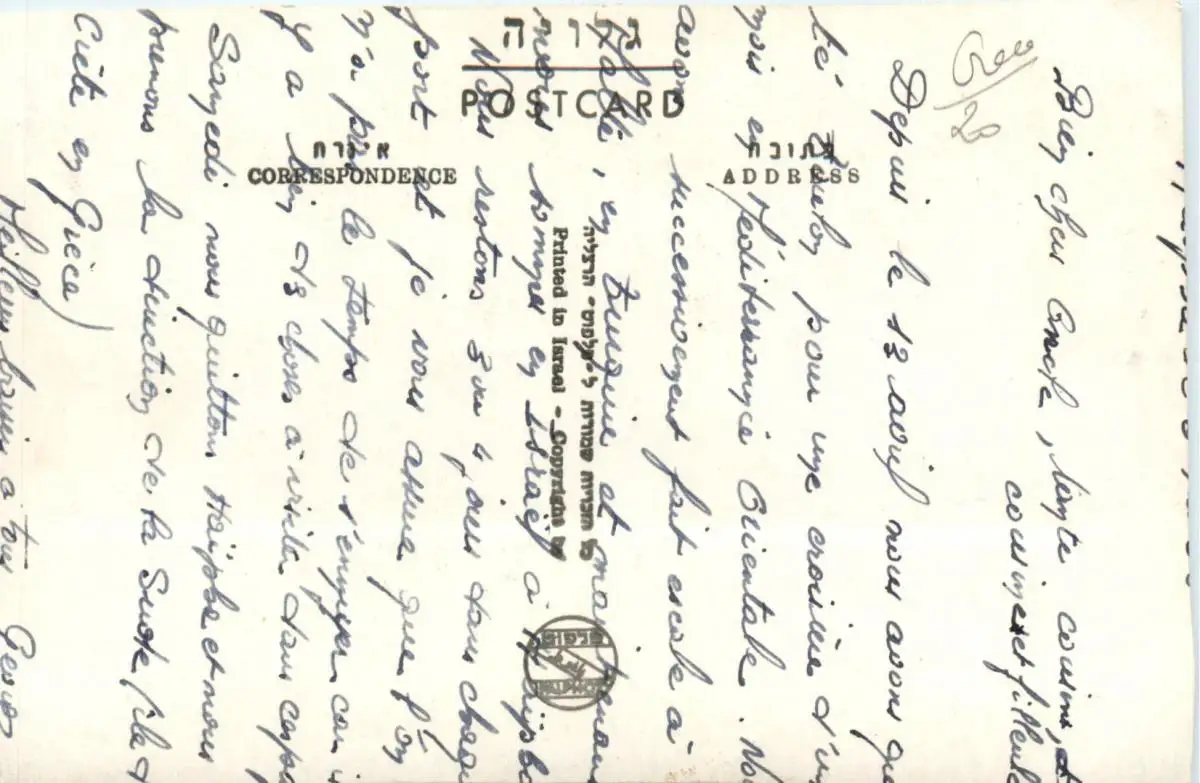 גלויה
POSTCARD
איגרת
CORRESPONDENCE
כתובת
ADDRESS
Printed in Israel - Copyright by
Bien chers Oncle, tante, cousins, et
cousines et filleul
Depuis le 13 avril nous avons qu
té Toulon pour une croisière d'u
mois en Méditerranée Orientale. No
avons successivement fait escale à
Malte, en Turquie et mainenan
nous sommes en Israël à Haïpha
Nous restons 3 ou 4 jours dans chaqu
port et je vous assure que l'on
n'a pas le temps de s'ennuyer car i
y a bien des choses à visiter dans ces pa
Samedi nous quittons Haïpha et nous
prenons la direction de la Sude (île d
Crète en Grèce)
Meilleurs baisers à tous Georges